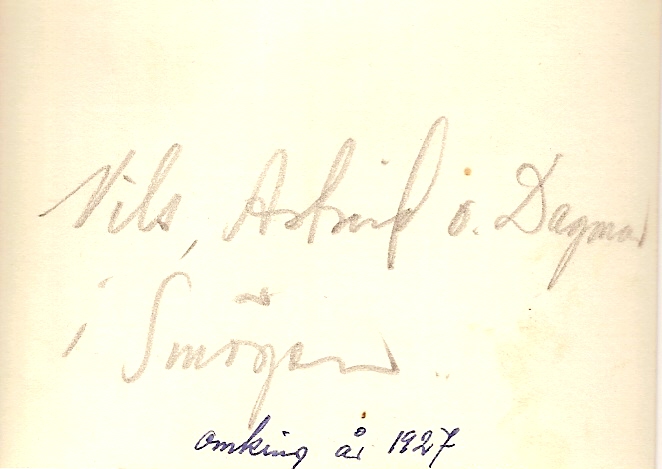 Nils, Astrid o. Dagmar
i Smögen
omkring år 1927